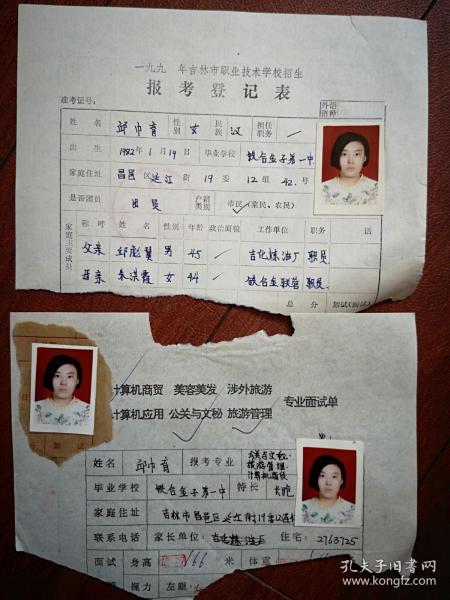 一九九 年吉林市职业技术学校招生
报考登记表
准考证号：
外语
语种
姓名 邱巾育 性别 女 民族 汉 担任职务 —
出生 1982年1月19日 毕业学校 铁合金子弟一中
家庭住址 昌邑区延江街19委12组42号
是否团员 团员 户籍类别 市民（菜民、农民）
家庭主要成员 称呼 姓名 性别 年龄 政治面貌 工作单位 职务 话
父亲 男 45 / 吉化炼油厂 职员
母亲 朱洪霞 女 44 / 铁合金联营 职员
总分 加试（面试）
计算机商贸 美容美发 涉外旅游
计算机应用 公关与文秘 旅游管理
专业面试单
姓名 邱巾育 报考专业 公关与文秘 旅游管理
毕业学校 铁合金子弟一中 特长 长跑
家庭住址 吉林市昌邑区延江街19委12组
联系电话 家长单位：吉化炼油厂 住宅：2763725
面试 身高 166 米 体重
视力 左眼
孔夫子旧书网
www.kongfz.com